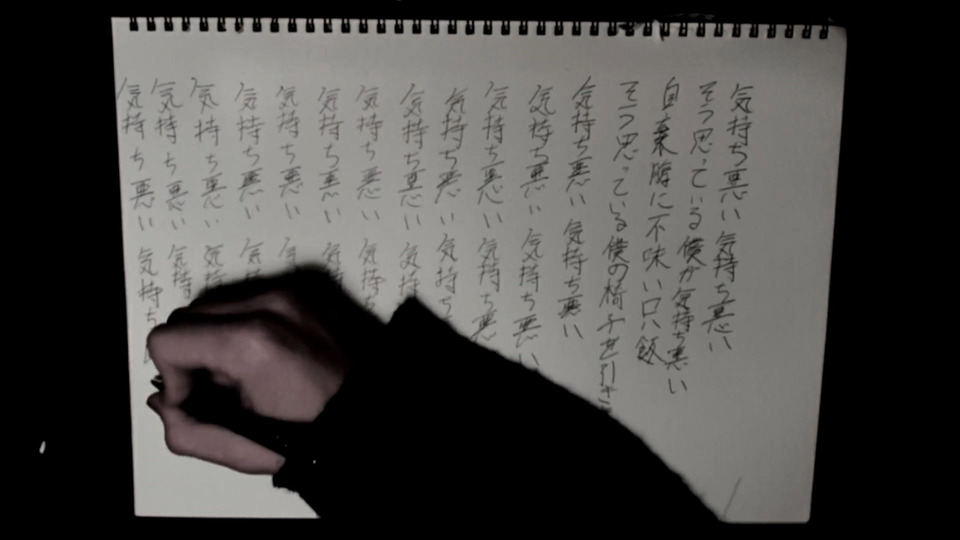 気持ち悪い 気持ち悪い
そう思っている僕が気持ち悪い
自棄 に不味い 飯
そう思っている僕の椅子を引き
気持ち悪い 気持ち悪い
気持ち悪い 気持ち悪い
気持ち悪い 気持ち悪
気持ち悪い 気持ち
気持ち悪い 気持
気持ち悪い 気持
気持ち悪い 気持
気持ち悪い 気
気持ち悪い 気持
気持ち悪い 気持
気持ち悪い 気持
気持ち悪い 気持ち